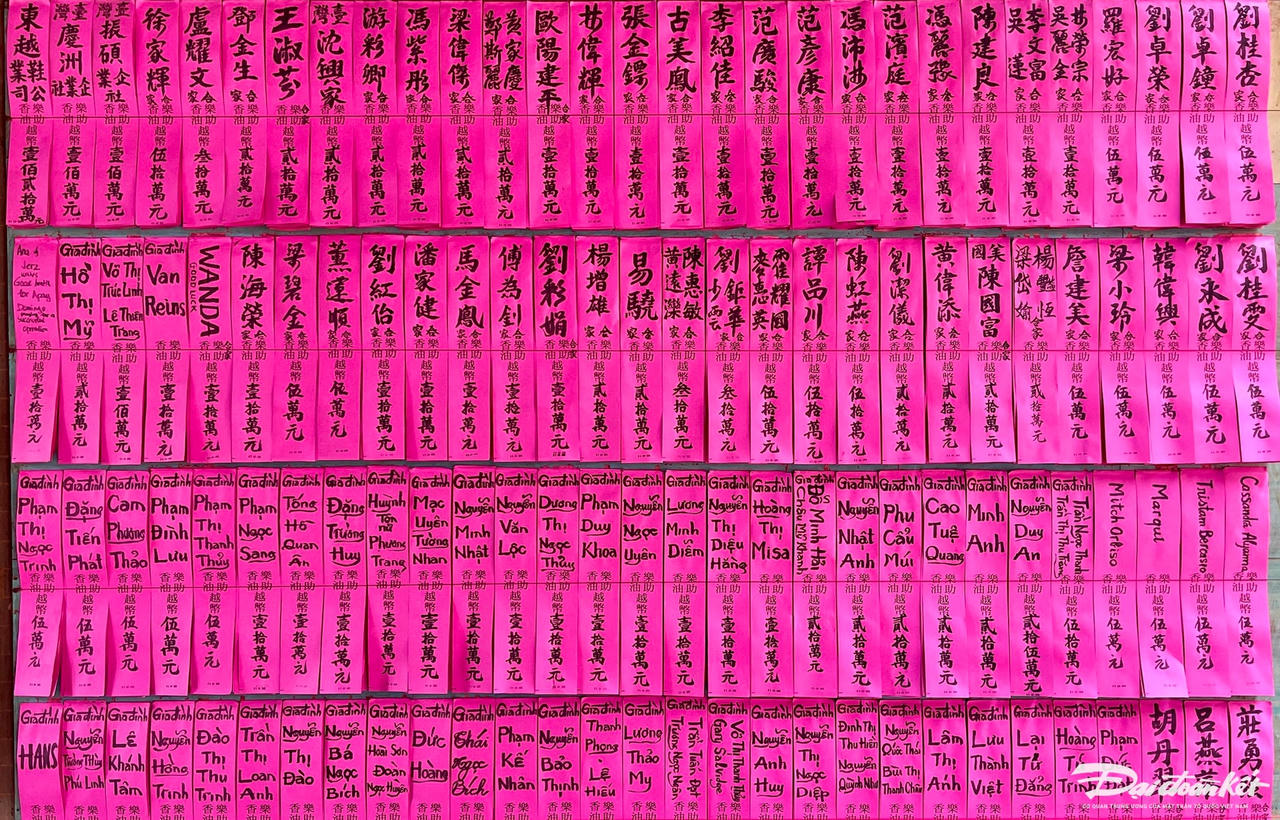 東越鞋業公司 樂助香油 越幣壹佰貳拾萬元
臺灣慶洲企業社 樂助香油 越幣壹佰萬元
臺灣振碩企業社 樂助香油 越幣壹佰萬元
徐家輝合家 樂助香油 越幣伍拾萬元
盧耀文合家 樂助香油 越幣叁拾萬元
鄧金生合家 樂助香油 越幣貳拾萬元
王淑芬合家 樂助香油 越幣貳拾萬元
臺灣沈興家合家 樂助香油 越幣貳拾萬元
游彩卿合家 樂助香油 越幣貳拾萬元
馮紫彤合家 樂助香油 越幣貳拾萬元
梁偉傑合家 樂助香油 越幣貳拾萬元
黃家慶 鄭斯麗 樂助香油 越幣貳拾萬元
歐陽建平合家 樂助香油 越幣壹拾萬元
偉輝合家 樂助香油 越幣壹拾萬元
張金鍔合家 樂助香油 越幣壹拾萬元
古美鳳合家 樂助香油 越幣壹拾萬元
李紹佳合家 樂助香油 越幣壹拾萬元
范廣駿合家 樂助香油 越幣壹拾萬元
范彥康合家 樂助香油 越幣壹拾萬元
馮沛合家 樂助香油 越幣壹拾萬元
范濱庭合家 樂助香油 越幣壹拾萬元
馮麗合家 樂助香油 越幣壹拾萬元
陳建良合家 樂助香油 越幣壹拾萬元
李文富 吳蓮合家 樂助香油 越幣壹拾萬元
榮宗 吳麗金合家 樂助香油 越幣壹拾萬元
羅宏好合家 樂助香油 越幣伍萬元
劉卓榮合家 樂助香油 越幣伍萬元
劉卓鐘合家 樂助香油 越幣伍萬元
劉桂杏合家 樂助香油 越幣伍萬元
Good health 樂助香油 越幣壹拾萬元
Gia đình Hồ Thị Mữ 樂助香油 越幣貳拾萬元
Gia đình Võ Thị Trúc Linh Lê Thiên Trang 樂助香油 越幣壹佰萬元
Gia đình Van Reins 樂助香油 越幣壹拾萬元
WANDA GOOD LUCK 合家 樂助香油 越幣壹拾萬元
陳海榮合家 樂助香油 越幣壹拾萬元
梁碧金合家 樂助香油 越幣伍萬元
蓮順合家 樂助香油 越幣伍萬元
劉紅合家 樂助香油 越幣壹拾萬元
潘家健合家 樂助香油 越幣壹拾萬元
馬金鳳合家 樂助香油 越幣壹拾萬元
傅為創合家 樂助香油 越幣壹拾萬元
劉彩娟合家 樂助香油 越幣壹拾萬元
楊增雄合家 樂助香油 越幣貳拾萬元
易驍合家 樂助香油 越幣貳拾萬元
陳惠敏 黃遠灤合家 樂助香油 越幣叁拾萬元
劉鉅華 少雲合家 樂助香油 越幣叁拾萬元
耀國 惠英 樂助香油 越幣伍拾萬元
譚品川合家 樂助香油 越幣伍拾萬元
陳虹燕合家 樂助香油 越幣伍拾萬元
劉潔儀合家 樂助香油 越幣貳拾萬元
黃偉添合家 樂助香油 越幣貳拾萬元
美國陳國富合家 樂助香油 越幣貳拾萬元
楊恒 梁岱合家 樂助香油 越幣貳拾萬元
詹建美合家 樂助香油 越幣伍萬元
梁小玲合家 樂助香油 越幣伍萬元
韓偉興合家 樂助香油 越幣伍萬元
劉永成合家 樂助香油 越幣伍萬元
劉桂雯合家 樂助香油 越幣伍萬元
Gia đình Phạm Thị Ngọc Trinh 樂助香油 越幣伍萬元
Gia đình Đặng Tiến Phát 樂助香油 越幣伍萬元
Gia đình Cam Phương Thảo 樂助香油 越幣伍萬元
Gia đình Phạm Đình Lưu 樂助香油 越幣伍萬元
Gia đình Phạm Thị Thanh Thủy 樂助香油 越幣伍萬元
Gia đình Phạm Ngọc Sang 樂助香油 越幣壹拾萬元
Gia đình Tống Hồ Quan Ấn 樂助香油 越幣壹拾萬元
Gia đình Đặng Trường Huy 樂助香油 越幣壹拾萬元
Gia đình Huỳnh Tôn Nữ Phương Trang 樂助香油 越幣壹拾萬元
Gia đình Mạc Uyên Tường Nhan 樂助香油 越幣壹拾萬元
Gia đình Nguyễn Minh Nhật 樂助香油 越幣壹拾萬元
Gia đình Nguyễn Văn Lộc 樂助香油 越幣壹拾萬元
Gia đình Dương Thị Ngọc Thủy 樂助香油 越幣壹拾萬元
Gia đình Phạm Duy Khoa 樂助香油 越幣壹拾萬元
Gia đình Nguyễn Ngọc Uyên 樂助香油 越幣壹拾萬元
Gia đình Lương Minh Diễm 樂助香油 越幣壹拾萬元
Gia đình Nguyễn Thị Diệu Hằng 樂助香油 越幣壹拾萬元
Gia đình Hoàng Thị Misa 樂助香油 越幣壹拾萬元
Gia đình Bùi Minh Hải Châu Mỹ Khanh 樂助香油 越幣貳拾萬元
Gia đình Nguyễn Nhật Anh 樂助香油 越幣貳拾萬元
Gia đình Phu Cẩu Mú 樂助香油 越幣貳拾萬元
Gia đình Cao Tuệ Quang 樂助香油 越幣貳拾萬元
Gia đình Minh Anh 樂助香油 越幣貳拾萬元
Gia đình Nguyễn Duy An 樂助香油 越幣貳拾伍萬元
Gia đình Trần Ngọc Thanh Trần Thị Thu Trang 樂助香油 越幣伍拾萬元
Mitch Orbiso 樂助香油 越幣伍萬元
Marqui 樂助香油 越幣伍萬元
Tristam Borcasio 樂助香油 越幣伍萬元
Cassanka Alyanna 樂助香油 越幣伍萬元
Gia đình HANS 樂助香油
Gia đình Nguyễn Trường Thúy Phú Linh 樂助香油
Gia đình Lê Khánh Tâm 樂助香油
Gia đình Nguyễn Hồng Trinh 樂助香油
Gia đình Đào Thị Thu Trinh 樂助香油
Gia đình Trần Thị Loan Anh 樂助香油
Gia đình Nguyễn Thị Đào 樂助香油
Gia đình Nguyễn Bá Ngọc Bích 樂助香油
Gia đình Nguyễn Hoài Sơn Đoàn Ngọc Huyền 樂助香油
Gia đình Đức Hoàng 樂助香油
Gia đình Thái Ngọc Bích 樂助香油
Gia đình Phạm Kế Nhân 樂助香油
Gia đình Nguyễn Bảo Thịnh 樂助香油
Gia đình Thanh Phong - Lệ Hiếu 樂助香油
Gia đình Lương Thảo My 樂助香油
Gia đình Trần Tuấn Đạt Trương Ngọc Ngoan 樂助香油
Gia đình Võ Thị Thanh Thủy Gari Salvidge 樂助香油
Gia đình Nguyễn Anh Huy 樂助香油
Gia đình Nguyễn Thị Ngọc Diệp 樂助香油
Gia đình Đinh Thị Thu Hiền Nguyễn Quỳnh Như 樂助香油
Gia đình Nguyễn Quốc Thái Bùi Thị Thanh Chân 樂助香油
Gia đình Lâm Thị Ánh 樂助香油
Gia đình Lưu Thanh Việt 樂助香油
Gia đình Lại Tử Đằng
Gia đình Hoàng Tử Trinh
Gia đình Phạm Đức
胡丹
呂燕
莊勇
Daidoanket
CƠ QUAN TRUNG ƯƠNG CỦA MẶT TRẬN TỔ QUỐC VIỆT NAM